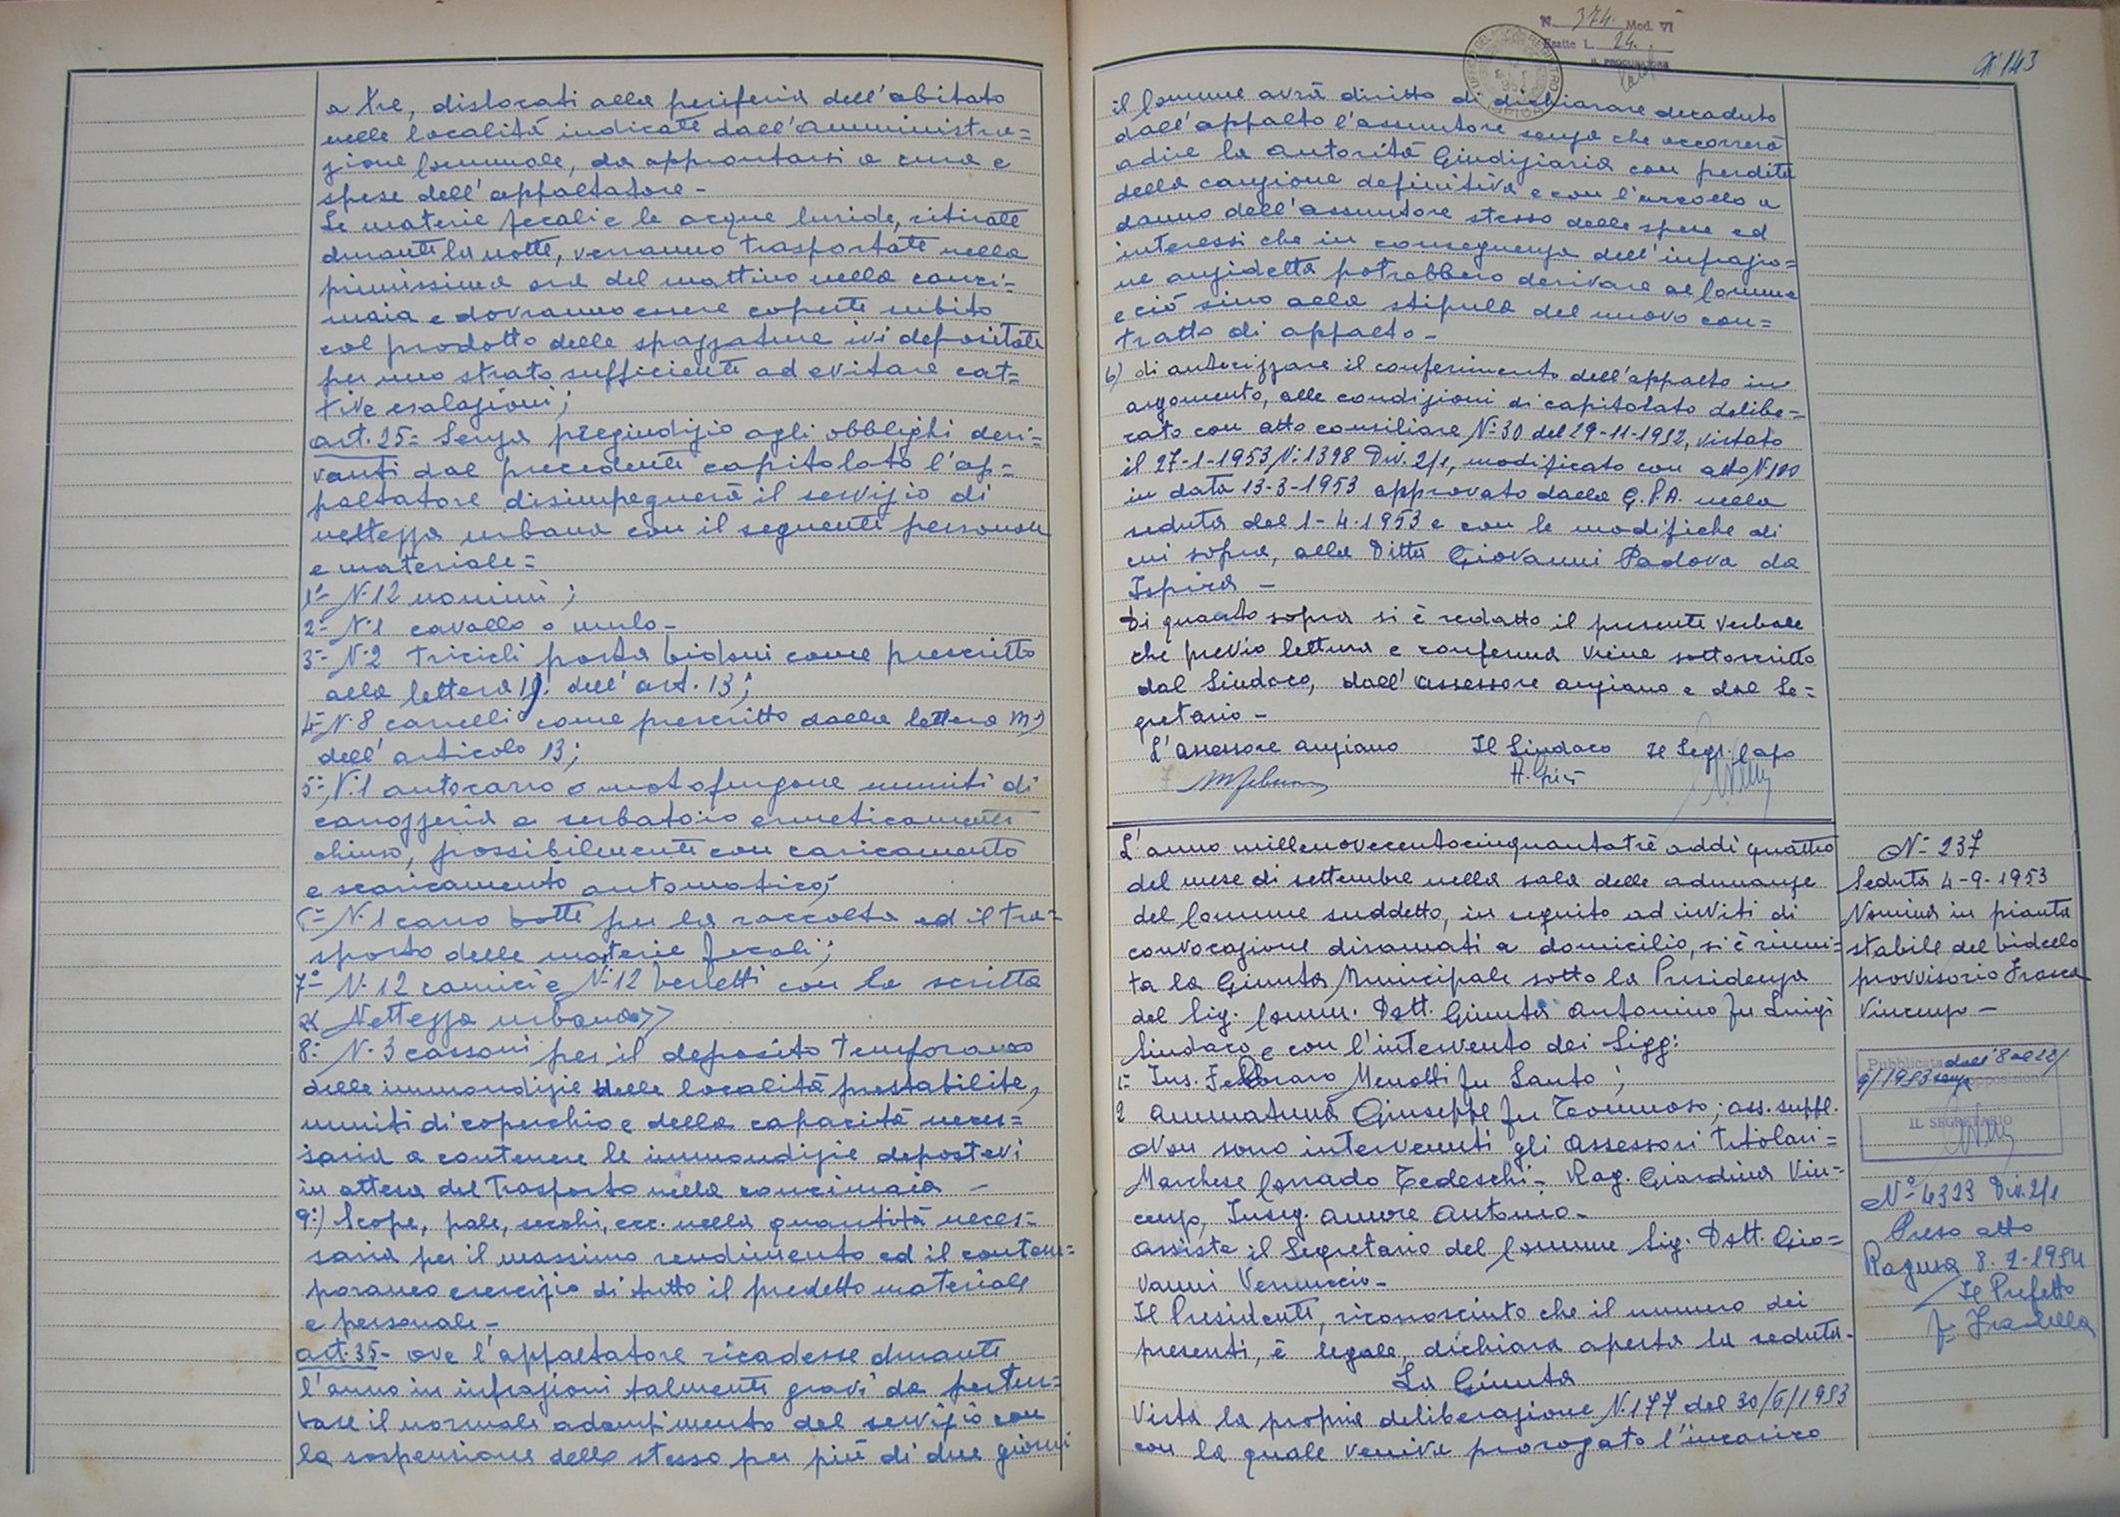 a tre, dislocati alla periferia dell'abitato
nelle località indicate dall'Amministra=
zione Comunale, da approntarsi a cura e
spese dell'appaltatore -
Le materie fecali e le acque luride, ritirate
durante la notte, verranno trasportate nella
primissima ora del mattino nella conci=
maia e dovranno essere coperte subito
col prodotto delle spazzature ivi depositate
per uno strato sufficiente ad evitare cat=
tive esalazioni;
art. 25= Senza pregiudizio agli obblighi deri=
vanti dal precedente capitolato l'ap=
paltatore disimpegnerà il servizio di
nettezza urbana con il seguente personale
e materiale=
1°- N. 12 uomini;
2°- N. 1 cavallo o mulo -
3°- N. 2 tricicli porta bidoni come prescritto
alla lettera dell'art. 13;
4°- N. 8 carrelli come prescritto dalla lettera m)
dell'articolo 13;
5°- N. 1 autocarro o motofurgone muniti di
carrozzeria a serbatoio ermeticamente
chiuso, possibilmente con caricamento
e scaricamento automatico;
6°- N. 1 carro botte per la raccolta ed il tra=
sporto delle materie fecali;
7°- N. 12 camici e N. 12 berretti con la scritta
<< Nettezza urbana>>
8°- N. 3 cassoni per il deposito temporaneo
delle immondizie delle località prestabilite,
muniti di coperchio e della capacità neces=
saria a contenere le immondizie depostevi
in attesa del trasporto nella concimaia -
9°) Scope, pale, secchi, ecc. nella quantità neces=
saria per il massimo rendimento ed il contem=
poraneo esercizio di tutto il predetto materiale
e personale -
art. 35- ove l'appaltatore ricadesse durante
l'anno in infrazioni talmente gravi da pertur=
bare il normale adempimento del servizio con
la sospensione dello stesso per più di due giorni
N. 374. Mod. VI
Esatte L. 24.
IL PROCURATORE
143
il Comune avrà diritto di dichiarare decaduto
dall'appalto l'assuntore senza che occorrerà
adire la autorità Giudiziaria con perdita
della cauzione definitiva e con l'accollo a
danno dell'assuntore stesso delle spese ed
interessi che in conseguenza dell'infrazio=
ne anzidetta potrebbero derivare al Comune
e ciò sino alla stipula del nuovo con=
tratto di appalto -
b) di autorizzare il conferimento dell'appalto in
argomento, alle condizioni di capitolato delibe=
rato con atto consiliare N. 30 del 29-11-1952, vistato
il 27-1-1953 N. 1398 Div. 2/1, modificato con atto N. 100
in data 13-3-1953 approvato dalla G.P.A. nella
seduta del 1-4-1953 e con le modifiche di
cui sopra, alla Ditta Giovanni Padova da
Ispica -
Di quanto sopra si è redatto il presente verbale
che previo lettura e conferma viene sottoscritto
dal Sindaco, dall'assessore anziano e dal Se=
gretario -
L'assessore anziano Il Sindaco Il Segr. Capo
L'anno millenovecentocinquantatrè addì quattro
del mese di settembre nella sala delle adunanze
del Comune suddetto, in seguito ad inviti di
convocazione diramati a domicilio, si è riuni=
ta la Giunta Municipale sotto la Presidenza
del Sig. Comm. Dott. Giunta Antonino fu Luigi
Sindaco e con l'intervento dei Sigg:
1- Ins. Febbraro Menotti fu Santo;
2 Ammatuna Giuseppe fu Tommaso; ass. suppl.
Non sono intervenuti gli Assessori titolari=
Marchese Corrado Tedeschi - Rag. Giardina Vin=
cenzo, Inseg. Amore Antonio -
Assiste il Segretario del Comune Sig. Dott. Gio=
vanni Vernuccio -
Il Presidente, riconosciuto che il numero dei
presenti, è legale, dichiara aperta la seduta -
La Giunta
Vista la propria deliberazione N. 177 del 30/6/1953
con la quale veniva prorogato l'incarico
N- 237
Seduta 4-9-1953
Nomina in pianta
stabile del bidello
provvisorio Frasca
Vincenzo -
Pubblicata dall'8 al 22/
9/1953 senza opposizioni
IL SEGRETARIO
N° 4323 Div. 2/1
Preso atto
Ragusa 8-2-1954
Il Prefetto